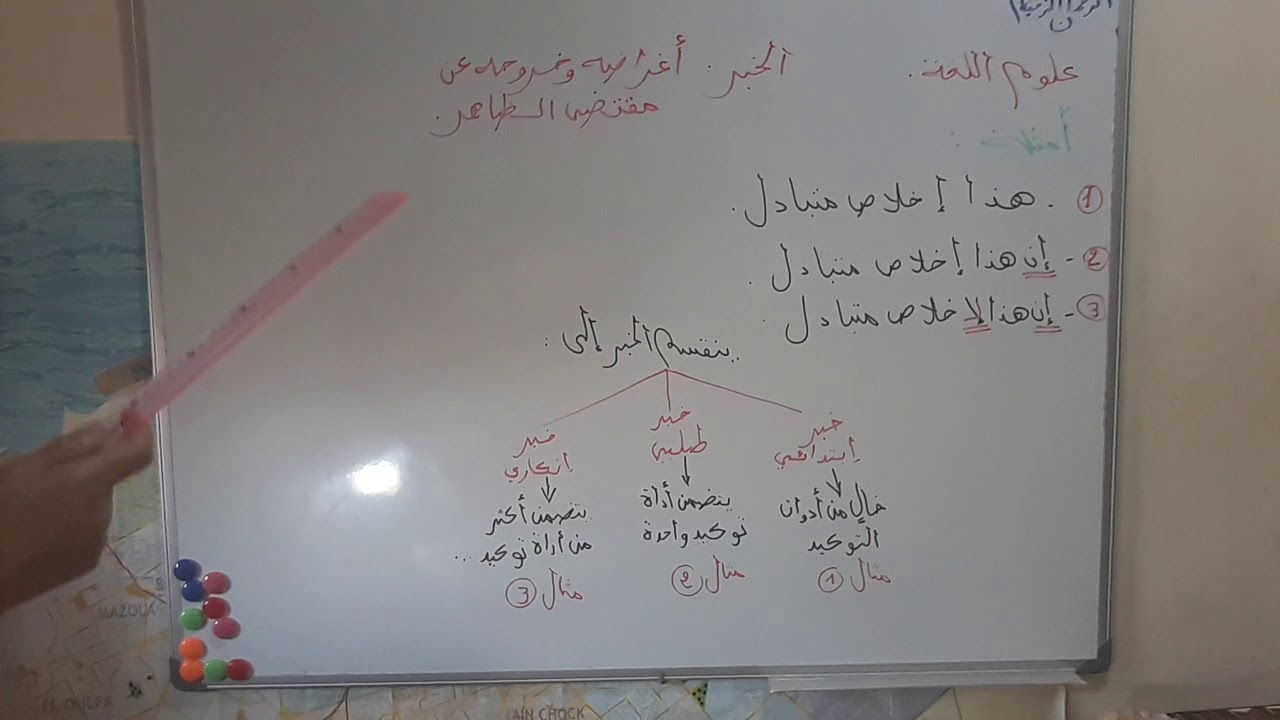 علوم اللغة.
الخبر: أغراضه وخروجه عن
مقتضى الظاهر.
أمثلة:
① - هذا إخلاص متبادل.
② - إن هذا إخلاص متبادل.
③ - إن هذا لإخلاص متبادل.
ينقسم الخبر إلى:
خبر
إبتدائي
خالٍ من أدوات
التوكيد
مثال ①
خبر
طلبي
يتضمن أداة
توكيد واحدة
مثال ②
خبر
إنكاري
يتضمن أكثر
من أداة توكيد...
مثال ③
MAZOLA
EL OULFA
AIN CHOCK